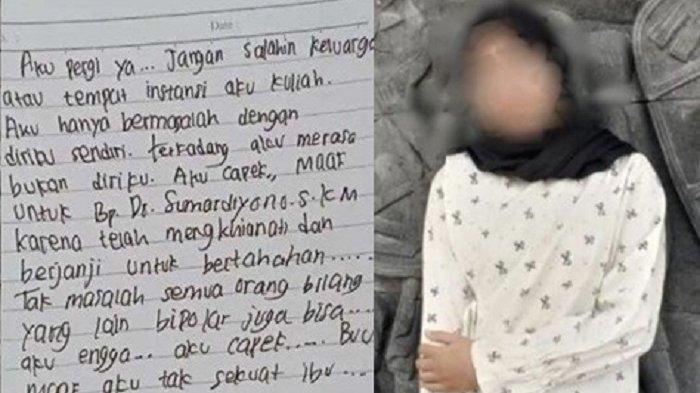 Date:
Aku pergi ya... Jangan salahin keluarga
atau tempat instansi aku kuliah.
Aku hanya bermasalah dengan
diriku sendiri. terkadang aku merasa
bukan diriku. Aku capek,, maaf
untuk Bp. Dr. Sumardiyono.S.KM
karena telah mengkhianati dan
berjanji untuk bertahahan.....
Tak masalah semua orang bilang
yang lain bipolar juga bisa....
aku engga... aku capek..... Bu
maaf aku tak sekuat ibu....